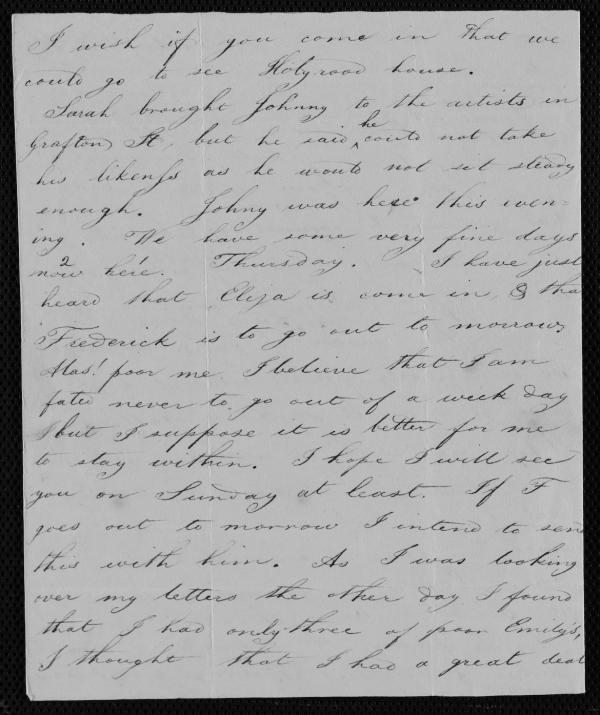 I wish if you come in that we
could go to see Holyrood house.
Sarah brought Johnny to the artists in
Grafton St, but he said he could not take
his likeness as he would not sit steady
enough. Johny was here this even=
ing. We have some very fine days
now here. Thursday. I have just
heard that Eliza is come in, & tha
Frederick is to go out to morrow,
Alas! poor me. I believe that I am
fated never to go out of a week day
but I suppose it is better for me
to stay within. I hope I will see
you on Sunday at least. If F
goes out to morrow I intend to send
this with him. As I was looking
over my letters the other day I found
that I had only three of poor Emily's,
I thought that I had a great deal